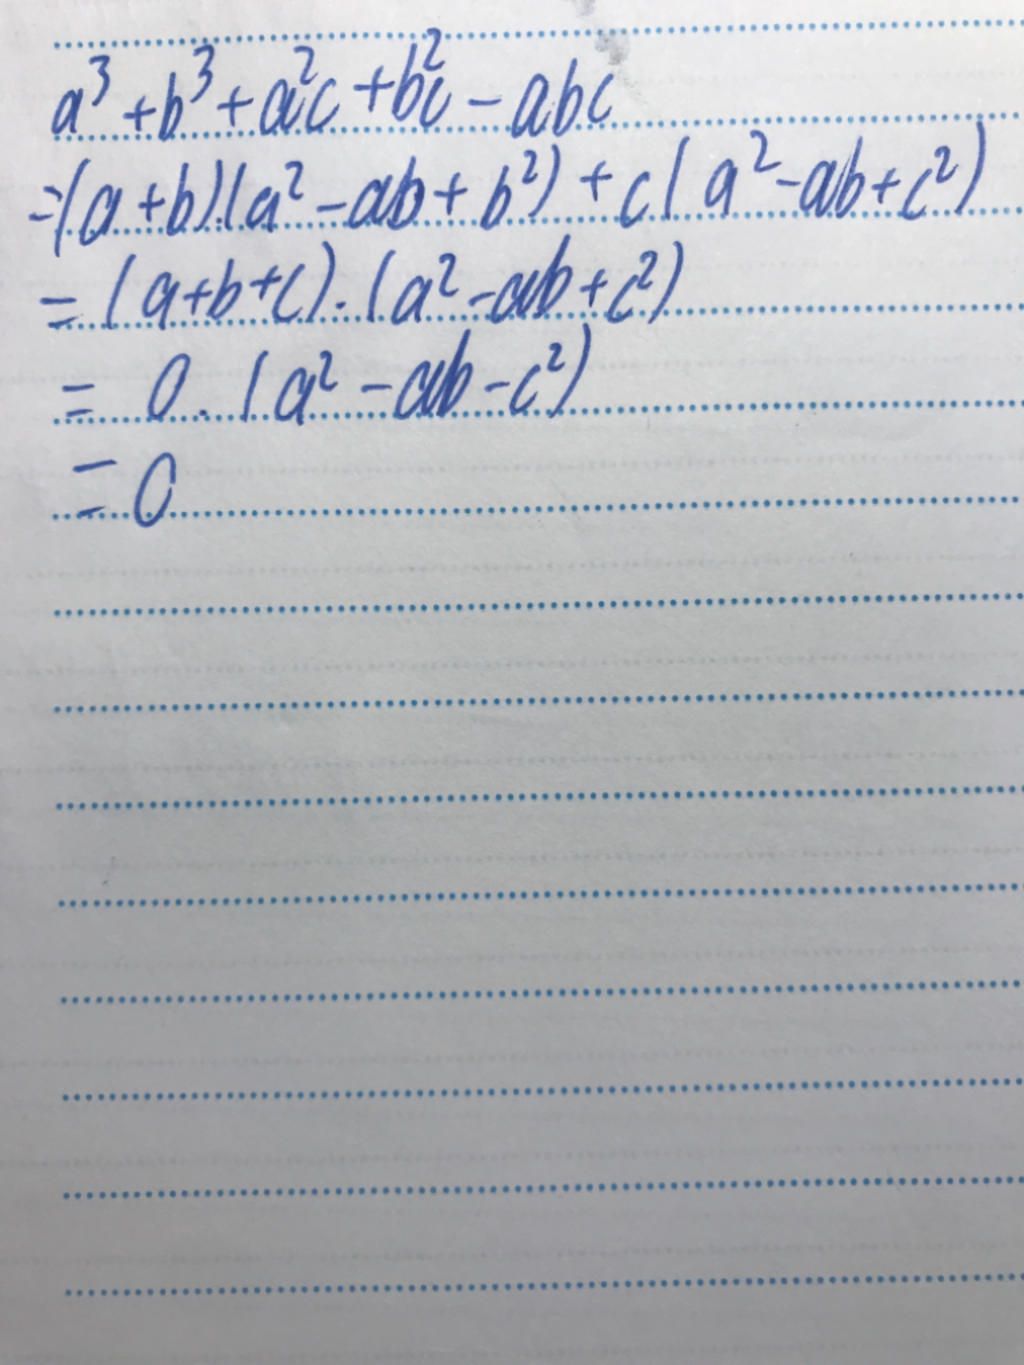 a³ + b³ + a²c + b²c - abc
= (a + b).(a² - ab + b²) + c(a² - ab + c²)
= (a + b + c).(a² - ab + c²)
= 0.(a² - ab - c²)
= 0